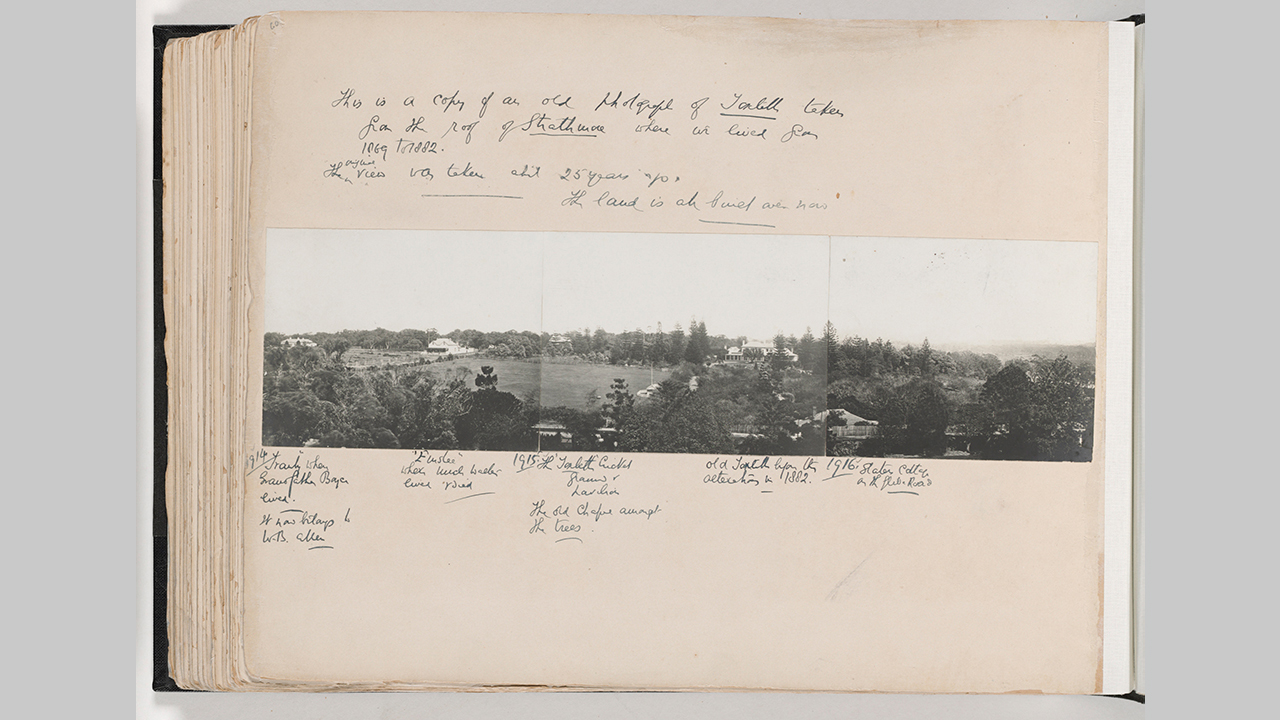 60
This is a copy of an old photgraph of Toxteth taken
from the roof of Strathmore where we lived from
1869 to 1882.
The original view was taken abt 25 years ago.
The land is all built over now
1914 where
Grandfather Boyce
lived.
It now belongs to
W.B. Allen
where Uncle
lived & died
1915 The Toxteth Cricket
Ground &
Pavilion
The old Chapel amongst
the trees.
old Toxteth before the
alterations in 1882.
1916 Cottage
on the Glebe Road